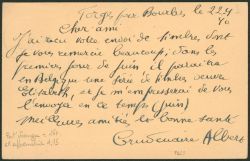 Forges par Bourlers le 22-5
40
Cher ami
J'ai reçu votre envoi de timbre, dont
je vous remercie beaucoup, dans les
premiers jours de juin il paraitra
en Belgique une série de timbres reine
Elisabeth, et je m'empresserai de vous
l'envoyer en ce temps (juin)
Meilleures amitiés et bonne santé
Albert